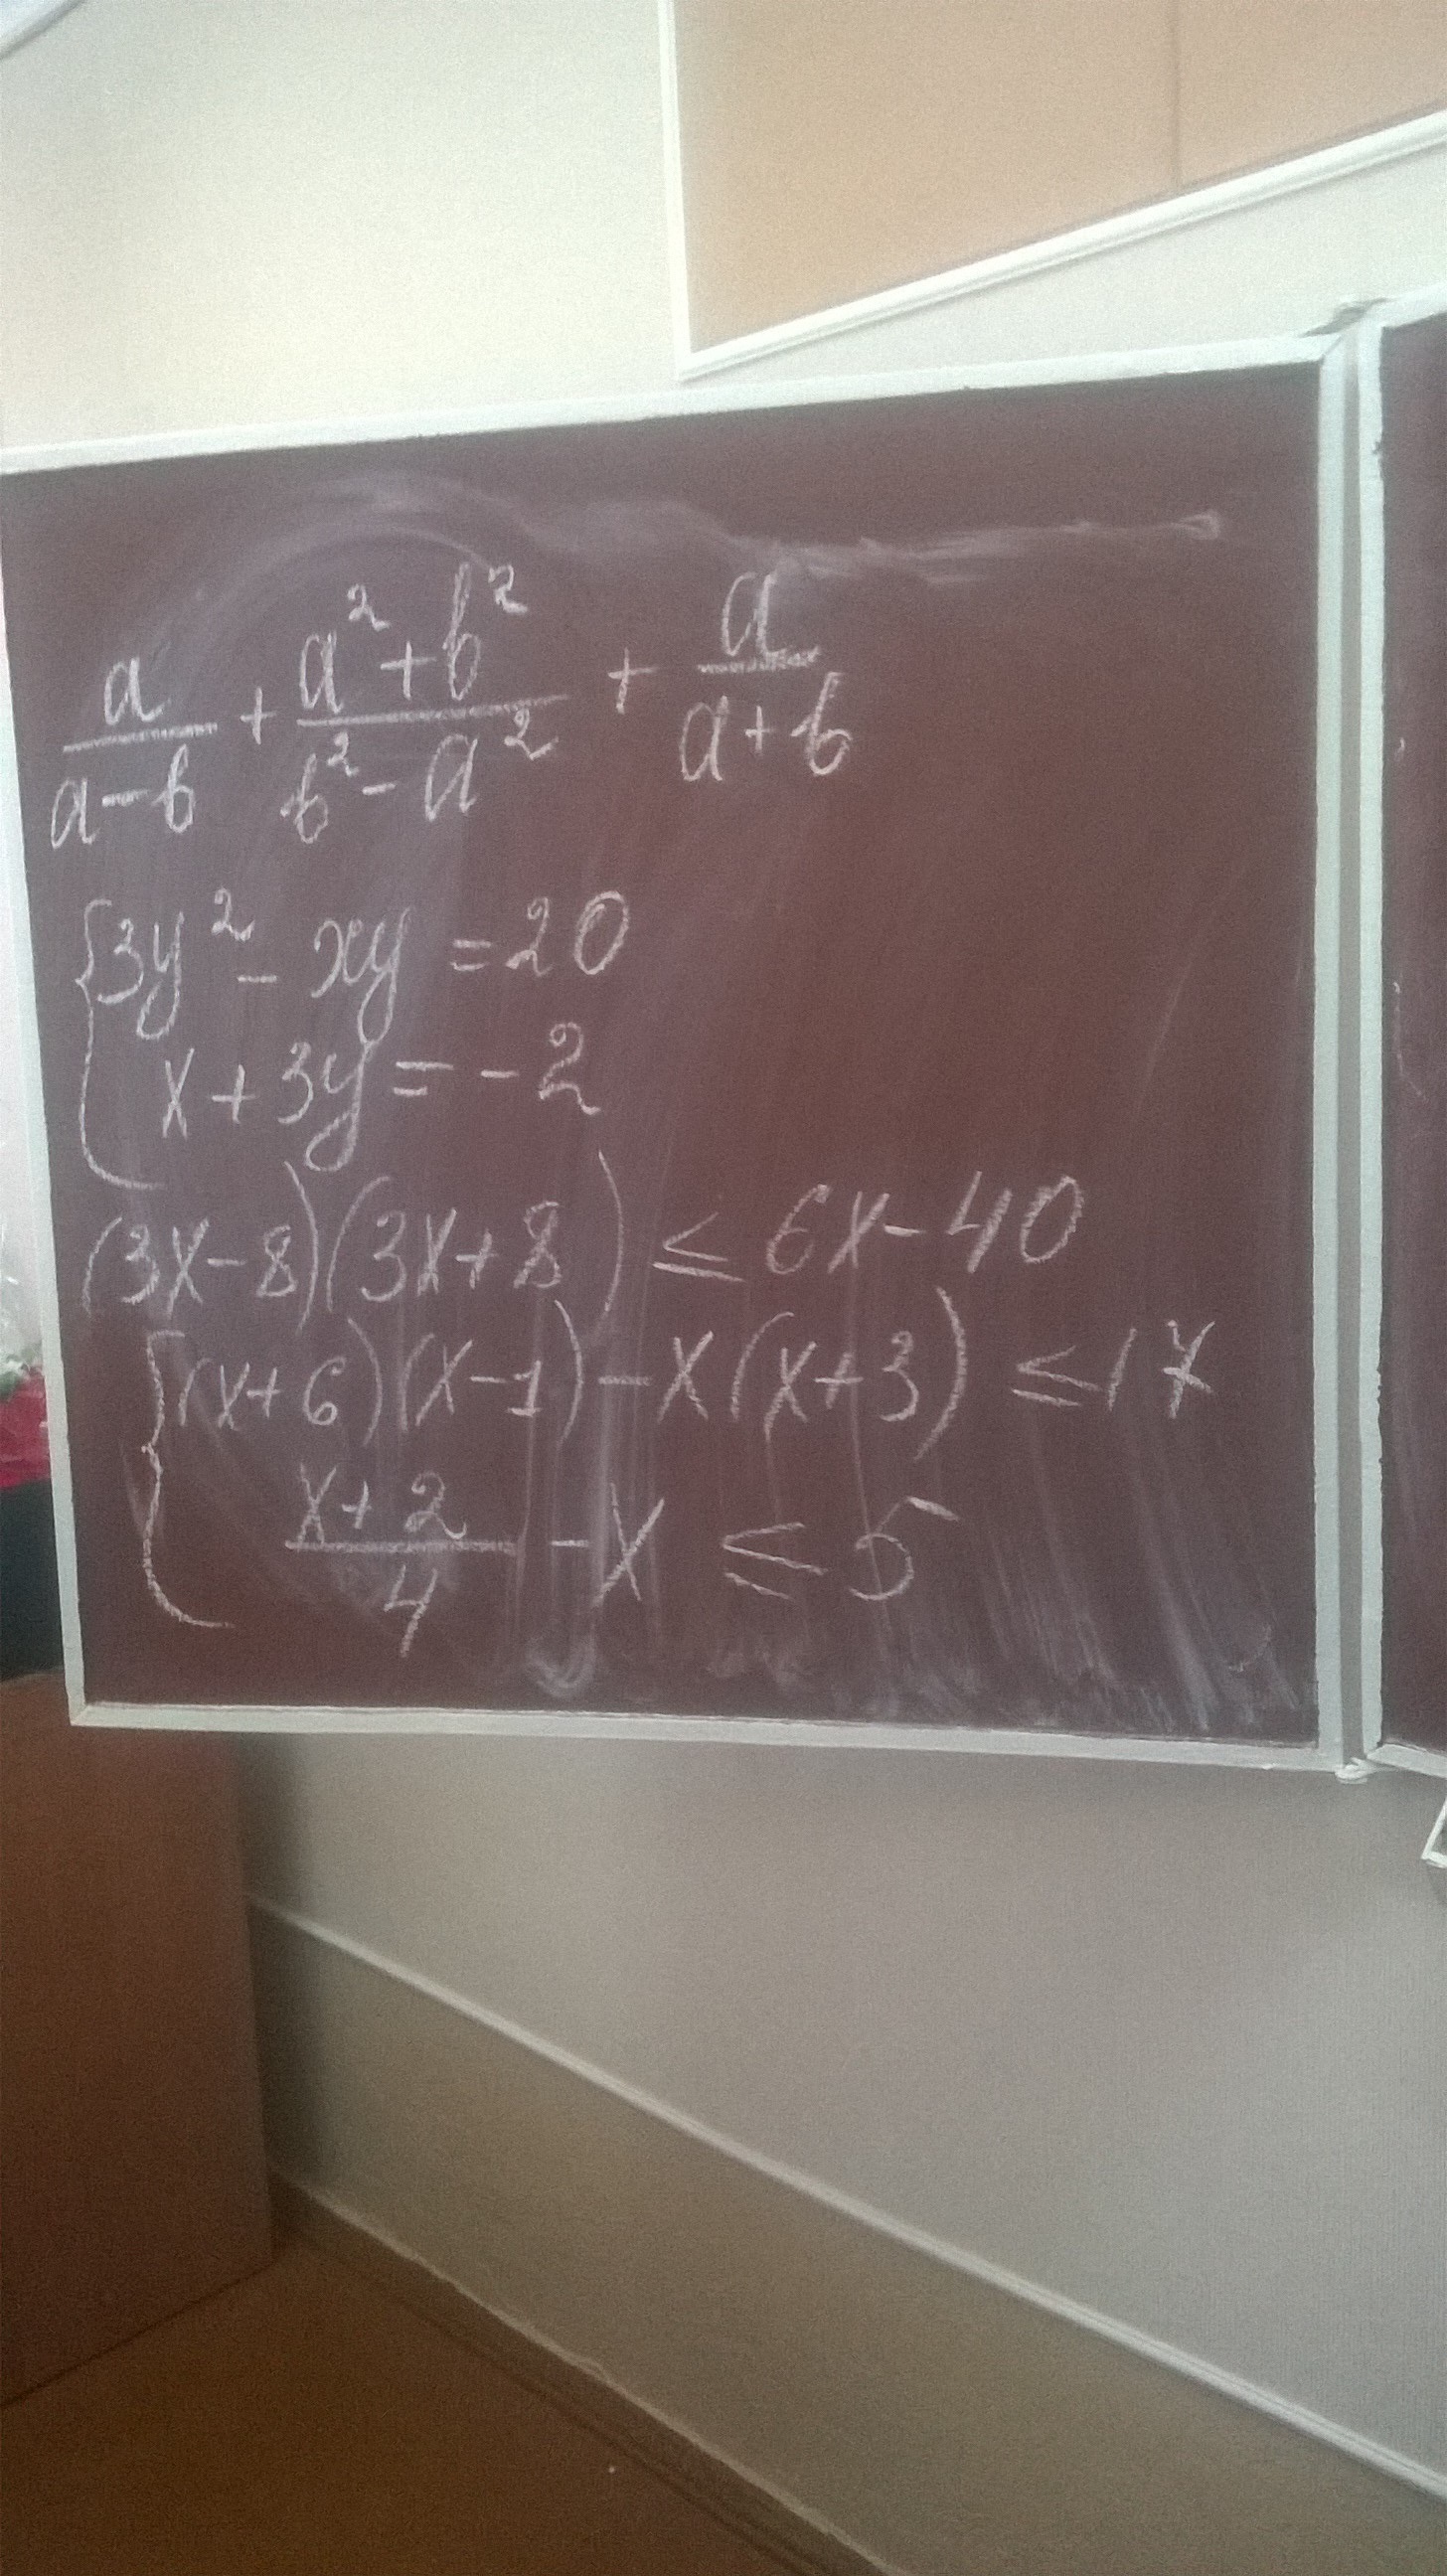 a/(a-b) + (a²+b²)/(b²-a²) + a/(a+b)
{3y² - xy = 20
x + 3y = -2
(3x-8)(3x+8) ≤ 6x-40
{(x+6)(x-1) - x(x+3) ≤ 17
(x+2)/4 - x ≤ 5